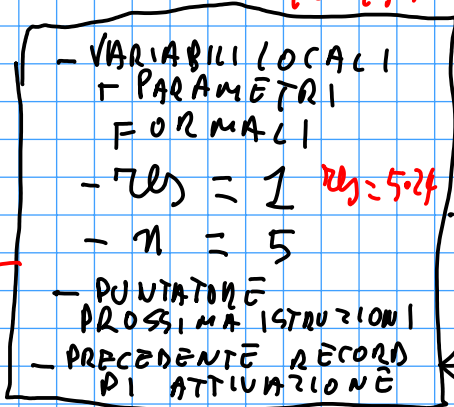 - VARIABILI LOCALI
+ PARAMETRI
FORMALI
- res = 1 res = 5·24
- n = 5
- PUNTATORE
PROSSIMA ISTRUZIONI
- PRECEDENTE RECORD
DI ATTIVAZIONE